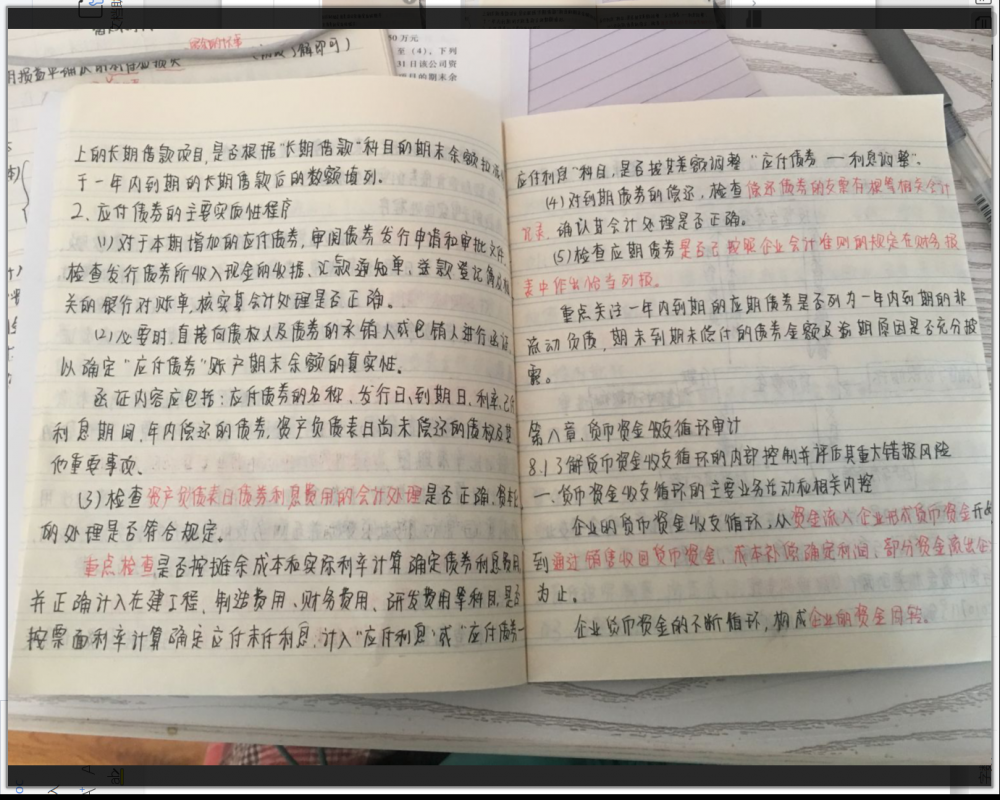 (需要了解即可)
0万元
至（4），下列
31日该公司资
目的期末余
上的长期借款项目,是否根据"长期借款"科目的期末余额扣除
于一年内到期的长期借款后的数额填列。
2、应付债券的主要实质性程序
(1)对于本期增加的应付债券,审阅债券发行申请和审批文件,
检查发行债券所收入现金的收据、汇款通知单、送款登记簿及相
关的银行对账单,核实其会计处理是否正确。
(2)必要时,直接向债权人及债券的承销人或包销人进行函证
以确定"应付债券"账户期末余额的真实性。
函证内容应包括:应付债券的名称、发行日、到期日、利率、已付
利息期间、年内偿还的债券,资产负债表日尚未偿还的债权及其
他重要事项、
(3)检查资产负债表日债券利息费用的会计处理是否正确,资本化
的处理是否符合规定。
重点检查是否按摊余成本和实际利率计算确定债券利息费用
并正确计入在建工程、制造费用、财务费用、研发费用等科目,是否
按票面利率计算确定应付未付利息,计入"应付利息"或"应付债券一
应付利息"科目,是否按其差额调整"应付债券一利息调整"。
(4)对到期债券的偿还,检查偿还债券的支票存根等相关会计
记录,确认其会计处理是否正确。
(5)检查应期债券是否已按照企业会计准则的规定在财务报
表中作出恰当列报。
重点关注一年内到期的应期债券是否列为一年内到期的非
流动负债,期末到期未偿付的债券金额及逾期原因是否充分披
露。
第八章、货币资金收支循环审计
8.1了解货币资金收支循环的内部控制并评估其重大错报风险
一、货币资金收支循环的主要业务活动和相关内控
企业的货币资金收支循环,从资金流入企业形成货币资金开始
到通过销售收回货币资金,成本补偿确定利润,部分资金流出企业
为止。
企业货币资金的不断循环,构成企业的资金周转。